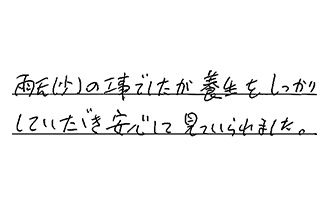 雨天(少)の工事でしたが養生をしっかり
していただき安心して見ていられました。